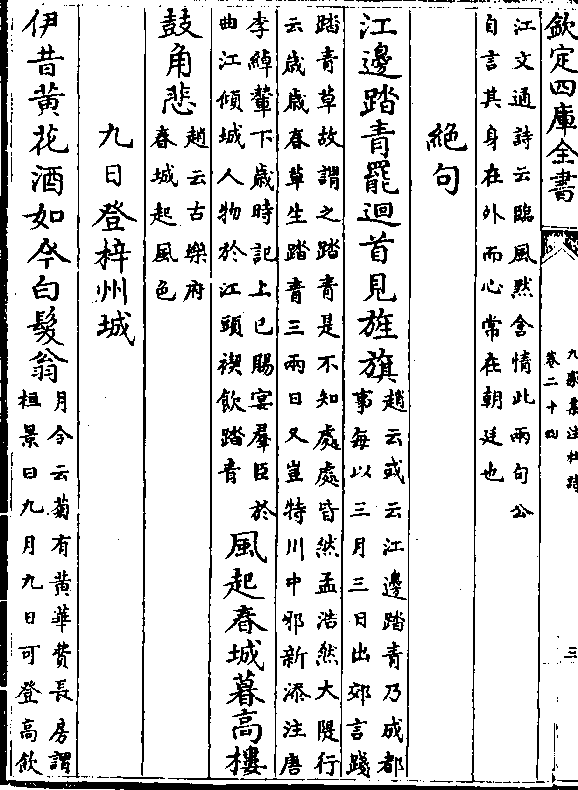 欽定四庫全書
九家集注杜詩
卷二十四
三
江文通詩云臨風黙含情此兩句公
自言其身在外而心常在朝廷也
絶句
江邊踏青罷迴首見旌旗
趙云或云江邊踏青乃成都
事每以三月三日出郊言踐
踏青草故謂之踏青是不知處處皆然孟浩然大隄行
云歲歲春草生踏青三兩日又豈特川中邪新添注唐
李綽輦下歲時記上巳賜宴羣臣於
曲江傾城人物於江頭禊飲踏青
風起春城暮高樓
鼓角悲
趙云古樂府
春城起風色
九日登梓州城
伊昔黄花酒如今白髮翁
月令云菊有黄華費長房謂
桓景曰九月九日可登高飲